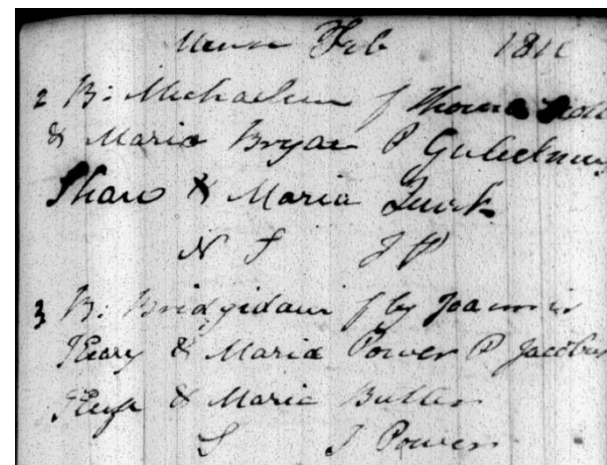 Mense Feb 181
2 B: Michaelem f Thoma
& Maria Bryan P Gulielmus
Shaw & Maria Quirk
N S J P
3 B: Bridgidam f by Joannis
& Maria Power P Jacobus
& Maria Butler
S J Power